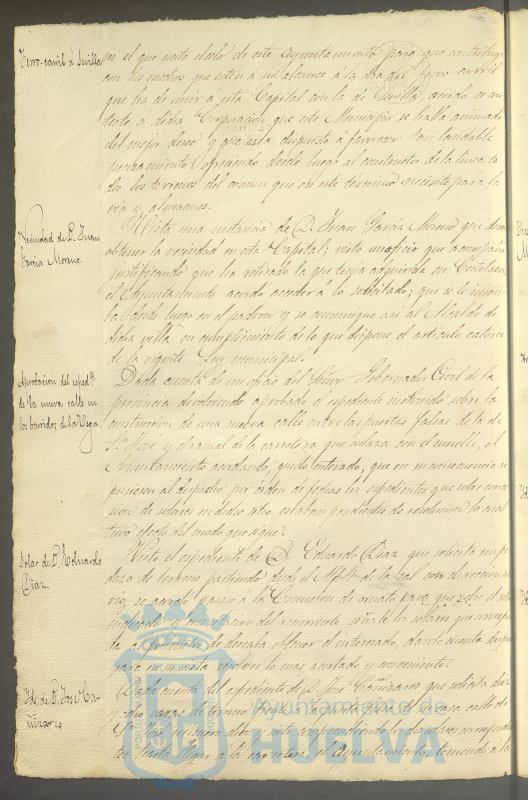 Ferro-carril á Sevilla
en el que insta el celo de este Ayuntamiento para que contribuya
con los medios que esten á su alcance á la via del ferro-carril
que ha de unir á esta Capital con la de Sevilla acordó se con
teste á dicha Corporacion que este Municipio se halla animado
del mejor deseo y que está dispuesto á favorecer tan laudable
pensamiento ofreciendo desde luego al constructor de la linea to
dos los terrenos del comun que en este término necesite para la
via y almacenes.
Vecindad de D. Juan
Garcia Moreno.
Vista una instancia de D. Juan Garcia Moreno que desea
obtener la vecindad en esta Capital; visto un oficio que acompaña
justificando que ha retirado la que tenia adquirida en Cortelazor
el Ayuntamiento acordó acceder á lo solicitado; que se le inscri
ba desde luego en el padron y se comunique asi al Alcalde de
dicha villa en cumplimiento de lo que dispone el articulo catorce
de la vigente ley municipal.
Aprobacion del espedte
de la nueva calle en
los barridos de la Vega
Dada cuenta de un oficio del Señor Gobernador Civil de la
provincia devolviendo aprobado el espediente instruido sobre la
construccion de una nueva calle entre las puertas falsas de la de
Sn. José y el ramal de la carretera que enlaza con el muelle, el
Ayuntamiento acordando quedó enterado, que en su consecuencia se
pusiesen al despacho por órden de fechas los espedientes que sobre conce
sion de solares en dicho sitio estaban pendientes de resolucion lo cual
tuvo efecto del modo que sigue.
Solar de D. Eduardo
Diaz.
Visto el espediente de D. Eduardo Diaz que solicita un pe
dazo de terreno partiendo desde el de la sal con direccion al
rio, se acordó pasase á la Comision de ornato para que sobre el sitio
indicado y con relacion del reconocerlo señale los solares que correspon
da al perímetro de desearlo obtener el interesado, dando cuenta despues
para en su vista resolver lo mas acertado y conveniente.
Id. de D. José Ca-
ñizares
Dada cuenta del espediente de D. José Cañizares que solicita diez
y ocho varas de terreno de la nueva calle de
Sn. José
tes hasta llegar á la carretera, el Ayuntamiento, teniendo á la
Ayuntamiento de
HUELVA